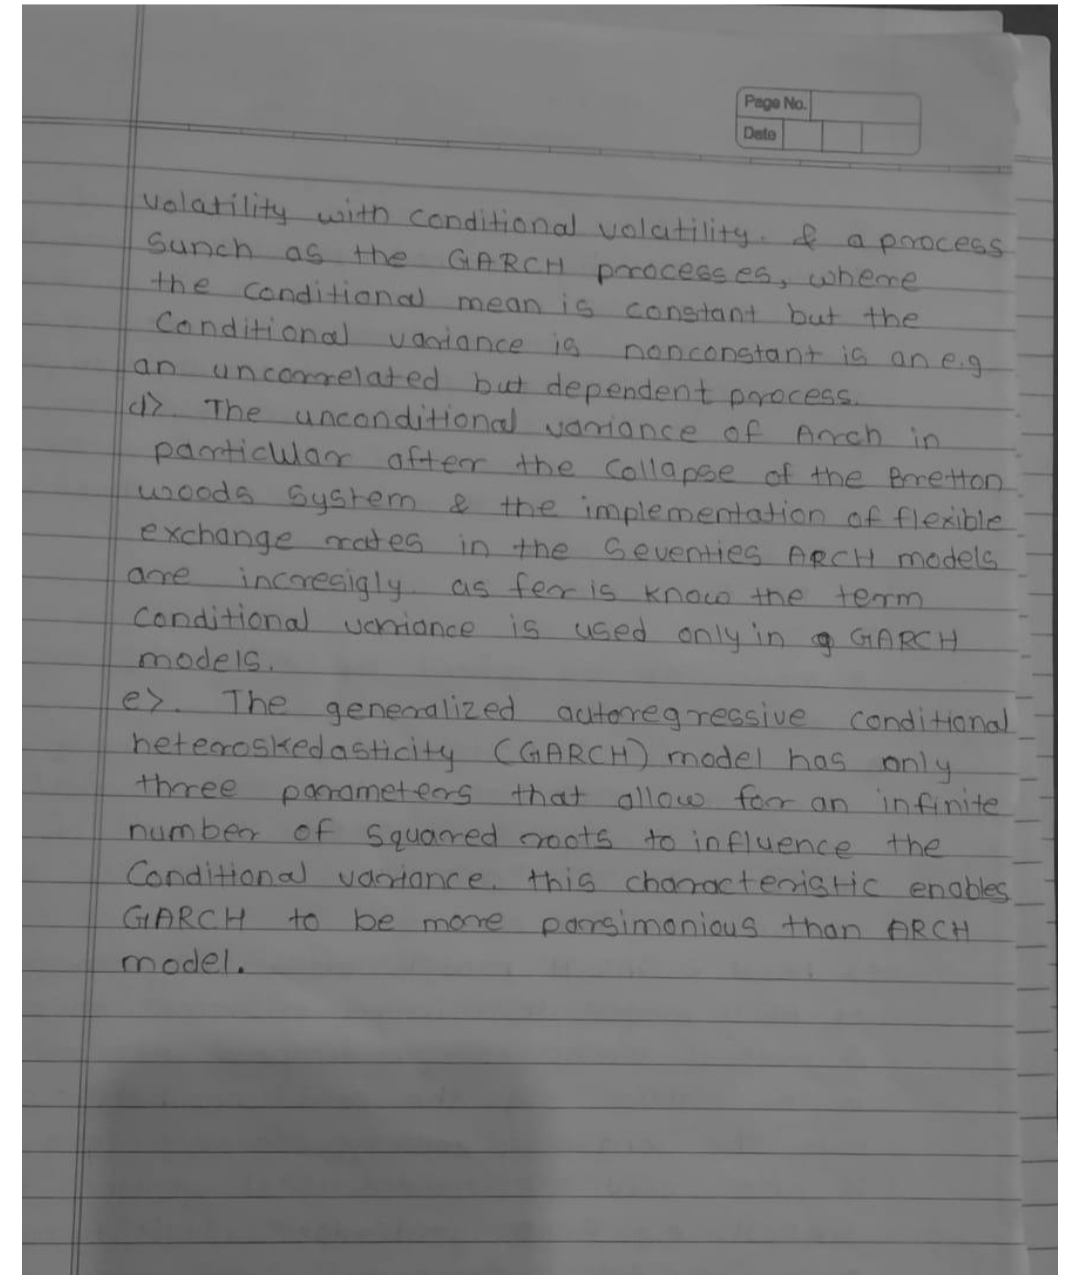 Page No.
Date
volatility with conditional volatility. & a process
Sunch as the GARCH processes, where
the conditional mean is constant but the
Conditional variance is nonconstant is an e.g
an uncorrelated but dependent process.
d>. The unconditional variance of Arch in
particular after the collapse of the Bretton
woods system & the implementation of flexible
exchange rates in the Seventies ARCH models
are incresigly as fer is know the term
Conditional variance is used only in GARCH
models.
e>. The generalized autoregressive conditional
heteroskedasticity (GARCH) model has only
three parameters that allow for an infinite
number of squared roots to influence the
Conditional variance. this characteristic enables
GARCH to be more parsimonious than ARCH
model.